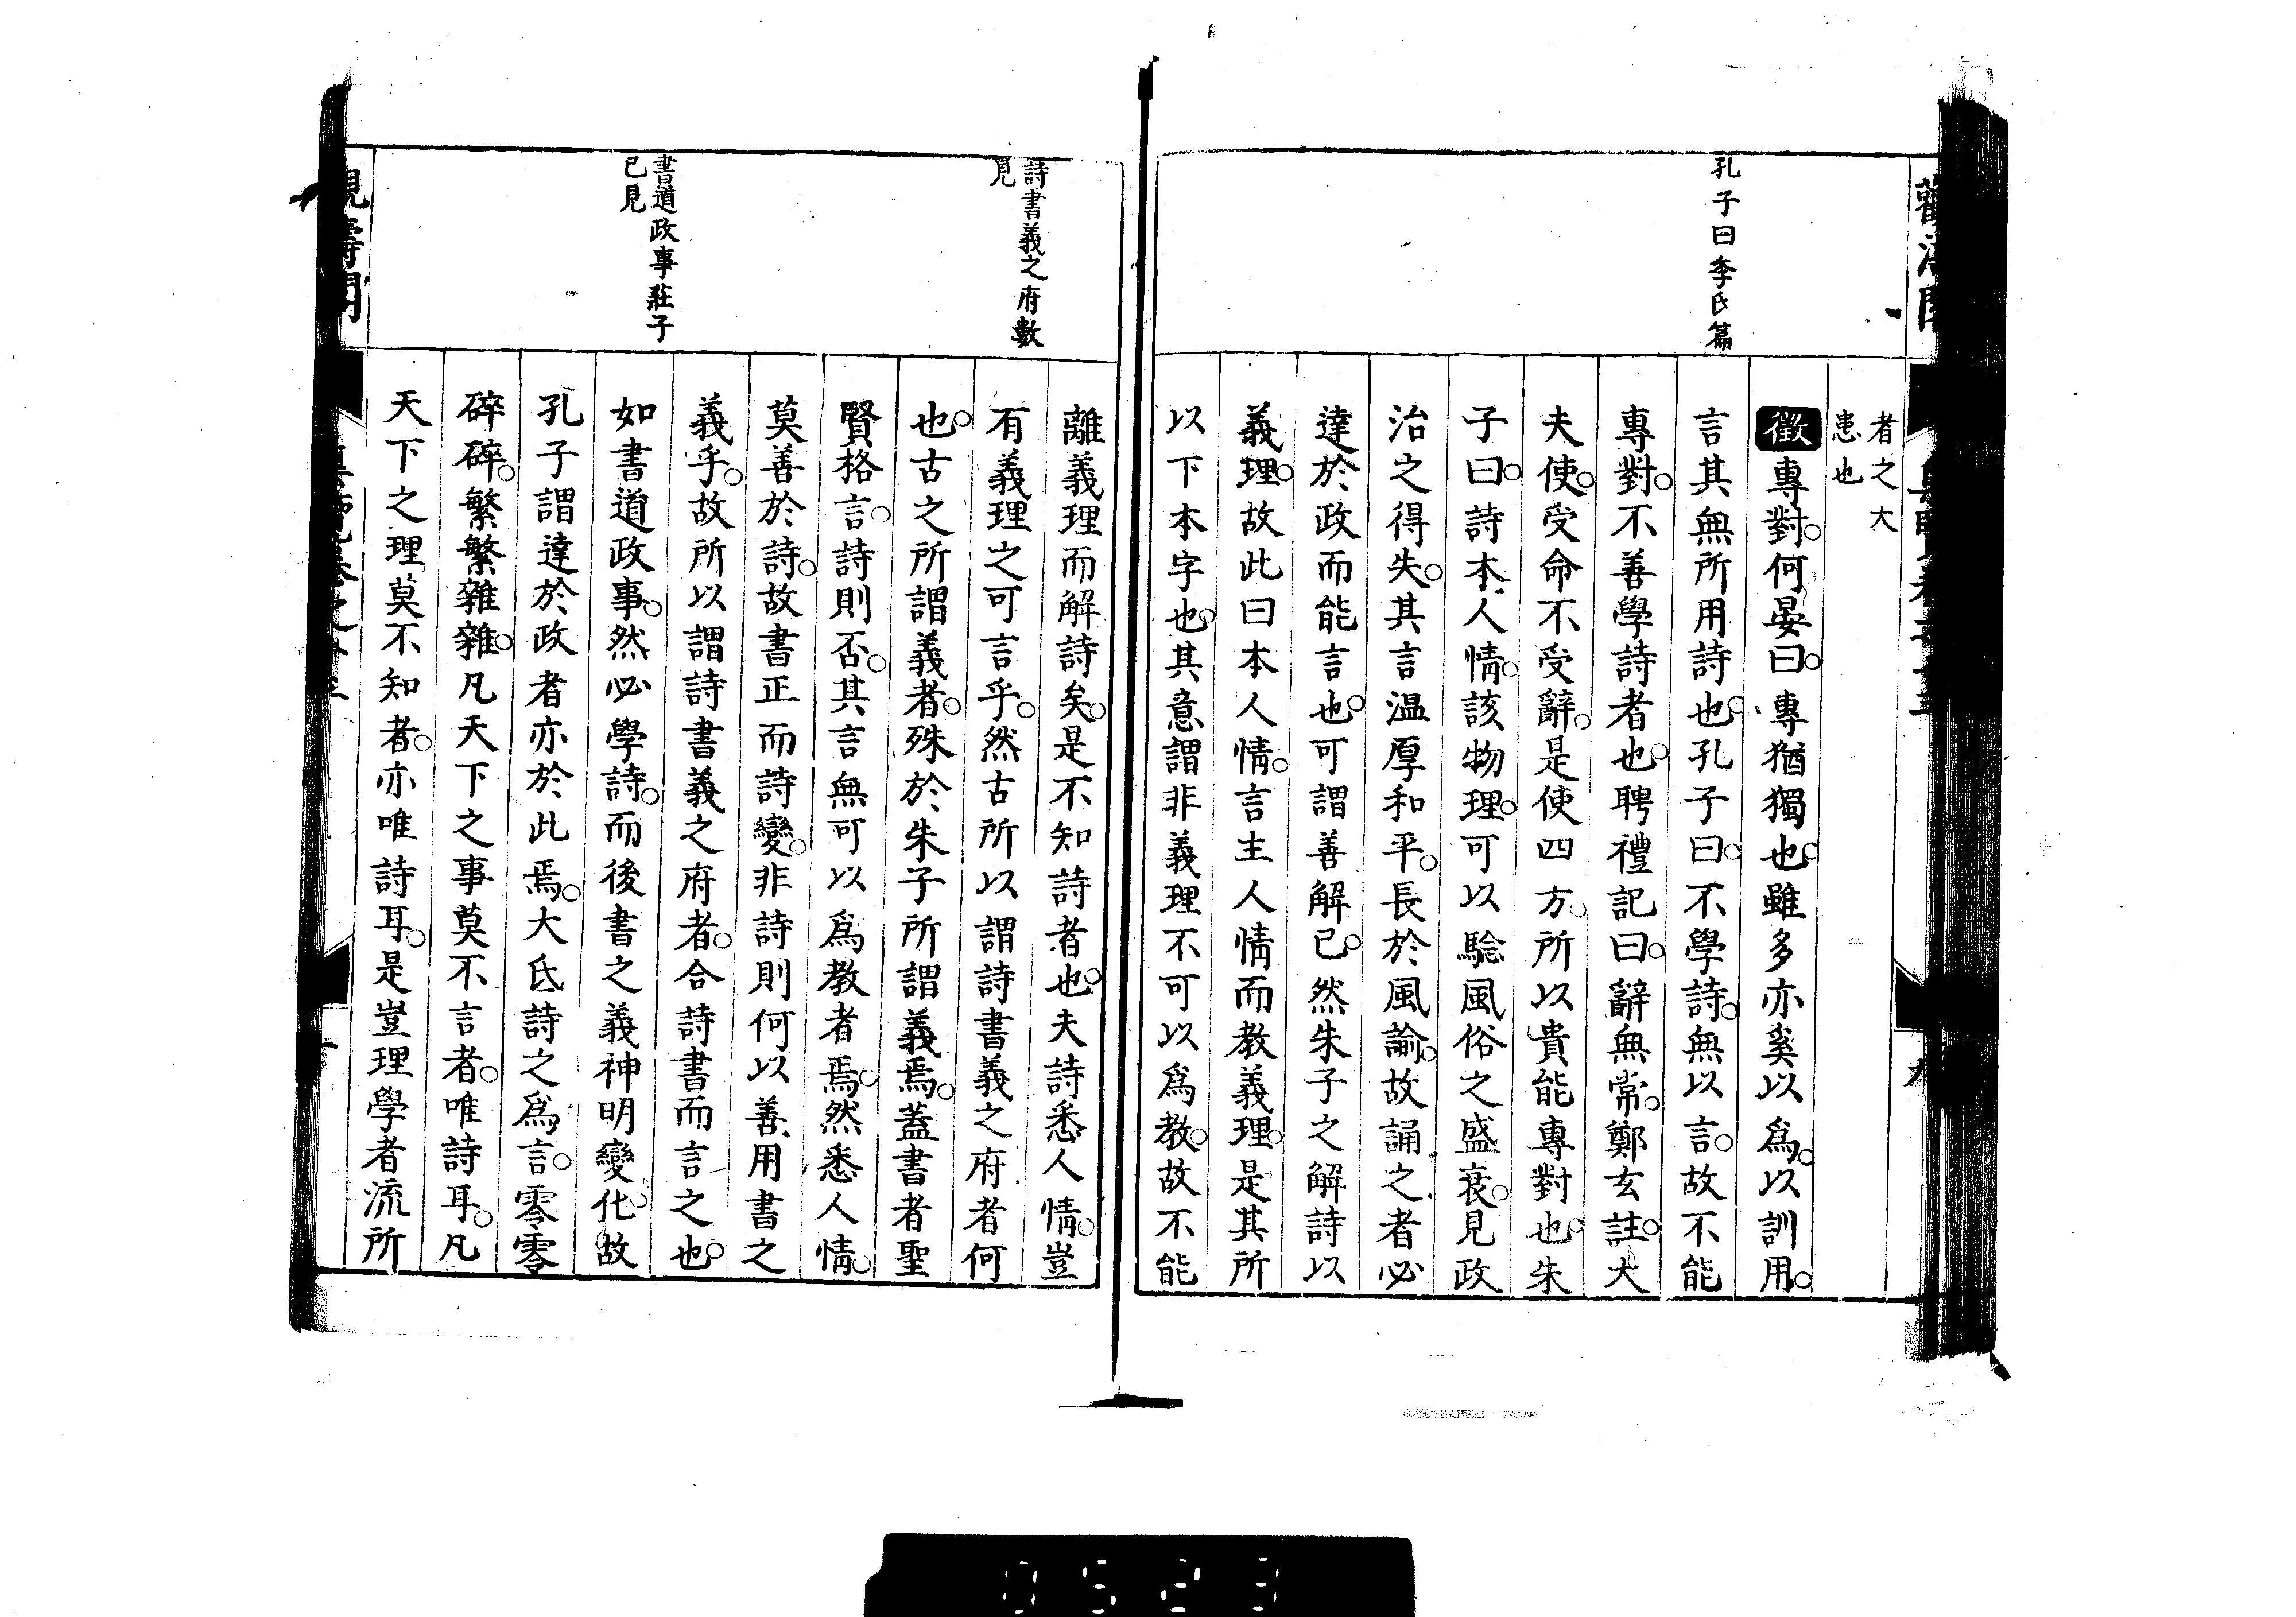 孔子曰季氏篇
者之大
患也
徵專對。何晏曰。專猶獨也。雖多亦奚以爲。以訓用。
言其無所用詩也。孔子曰。不學詩。無以言。故不能
專對。不善學詩者也。聘禮記曰。辭無常。鄭玄註。大
夫使。受命不受辭。是使四方。所以貴能專對也。朱
子曰。詩本人情。該物理。可以驗風俗之盛衰。見政
治之得失。其言温厚和平。長於風諭。故誦之者必
達於政而能言也。可謂善解已。然朱子之解詩以
義理。故此曰本人情。言主人情而教義理。是其所
以下本字也。其意謂非義理不可以爲教。故不能
詩書義之府數
見
書道政事莊子
已見
離義理而解詩矣。是不知詩者也。夫詩悉人情。豈
有義理之可言乎。然古所以謂詩書義之府者何
也。古之所謂義者。殊於朱子所謂義焉。蓋書者聖
賢格言。詩則否。其言無可以爲教者焉。然悉人情。
莫善於詩。故書正而詩變。非詩則何以善用書之
義乎。故所以謂詩書義之府者。合詩書而言之也。
如書道政事。然必學詩。而後書之義神明變化。故
孔子謂達於政者亦於此焉。大氐詩之爲言。零零
碎碎。繁繁雜雜。凡天下之事莫不言者。唯詩耳。凡
天下之理莫不知者。亦唯詩耳。是豈理學者流所
0523